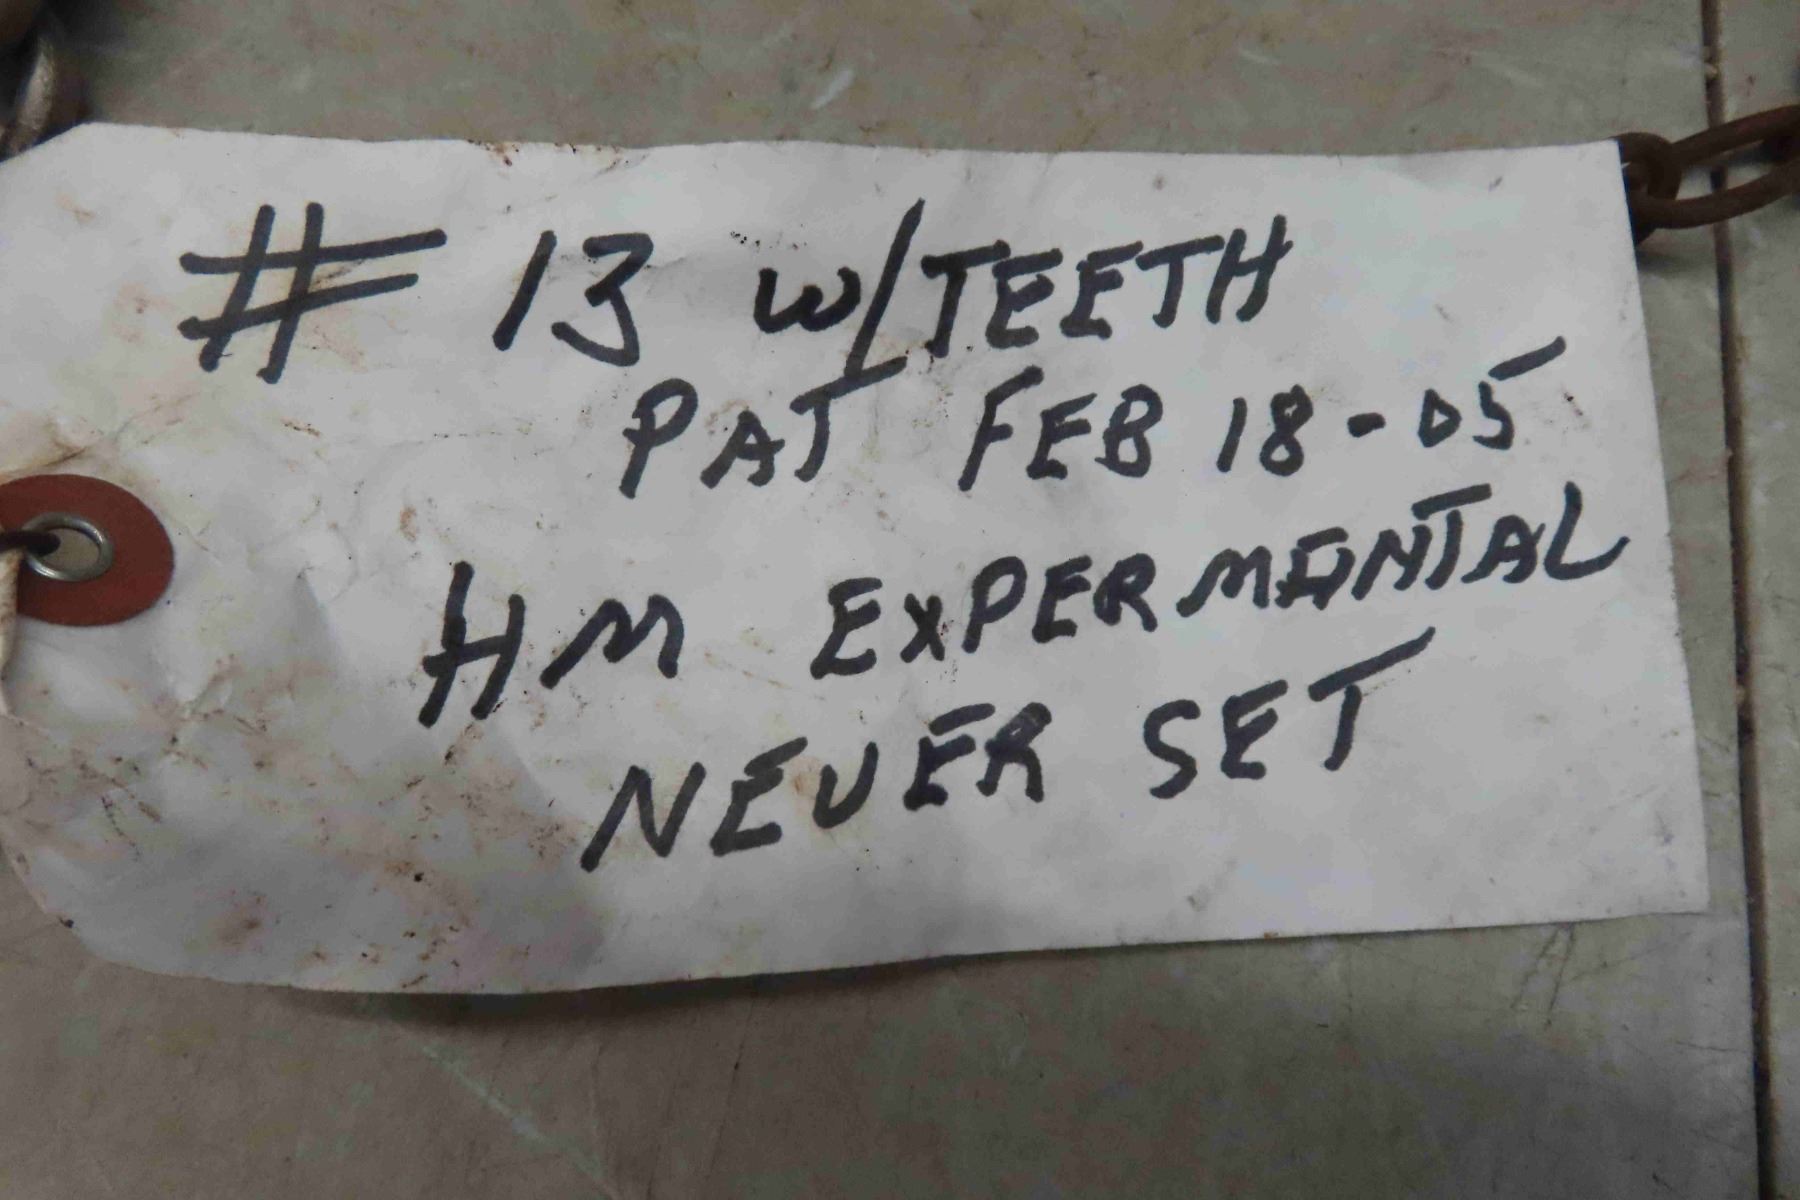 # 13 W/TEETH
PAT FEB 18-05
HM EXPERMENTAL
NEVER SET